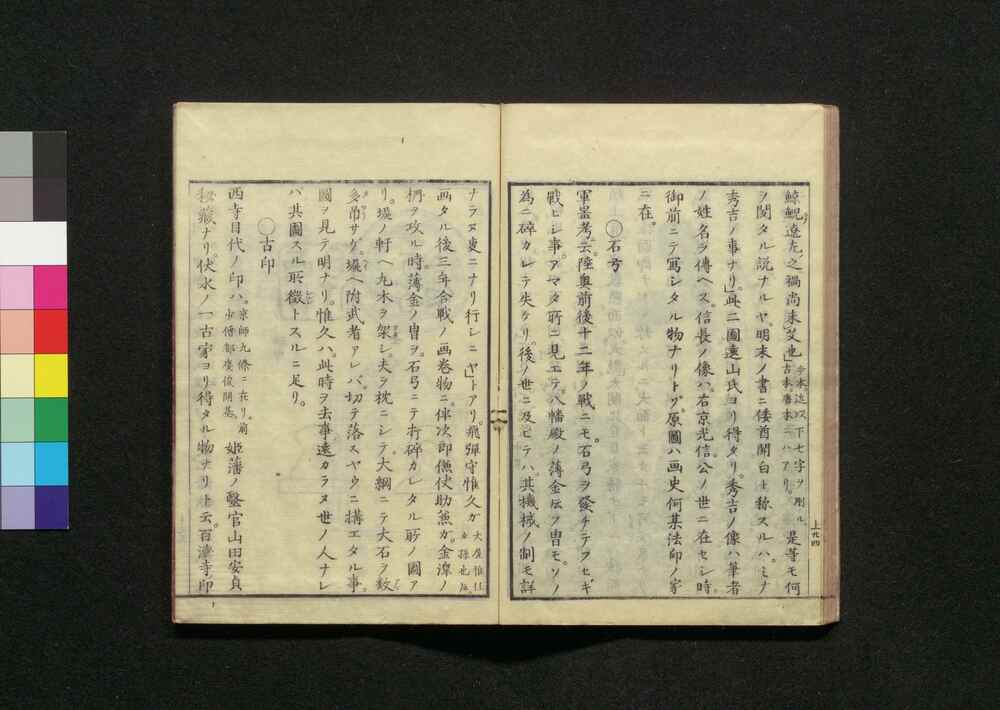 鯨鯢遼左之禍尚未艾也」今本、近以下七字ヲ削ル、古本唐本ニハアリ。是等モ何
ヲ閲タル説ナルヤ。明末ノ書ニ倭酋関白ト称スルハ。ミナ
秀吉ノ事ナリ」此二図遠山氏ヨリ得タリ。秀吉ノ像ハ筆者
ノ姓名ヲ傳ヘス。信長ノ像ハ。右京光信。公ノ世ニ在セシ時。
御前ニテ写シタル物ナリトゾ。原圖ハ画史何某法印ノ家
ニ在。
〇石弓
軍噐考云。陸奥前後十二年ノ戦ニモ。石弓ヲ發チテフセギ
戦ヒシ事。アマタ所ニ見エテ。八幡殿ノ薄金伝フ冑モ。ソノ
為ニ碎カレテ失ケリ。後ノ世ニ及ビテハ。其機械ノ制モ詳
ナラヌ叓ニナリ行レニヤ」トアリ。飛彈守惟久ガ
画タル後三年合戦ノ画巻物ニ。伴次郎傔仗助兼ガ。金澤ノ
柵ヲ攻ル時。薄金ノ冑ヲ。石弓ニテ打碎カレタル所ノ圖ア
リ。堀ノ軒ヘ九木ヲ架シ。夫ヲ枕ニシテ。大綱ニテ大石ヲ数
多吊サゲ。堀ヘ附武者アレバ。切テ落スヤウニ搆エタル事。
圖ヲ見テ明ナリ。惟久ハ。此時ヲ去事遠カラヌ世ノ人ナレ
バ。其圖スル所徴トスルニ足リ。
〇古印
西寺目代ノ印ハ。京師九條ニ在リ。 姫藩ノ醫官山田安貞
秘蔵ナリ。伏水ノ一古家ヨリ得タル物ナリト云。百濟寺印
上廿四